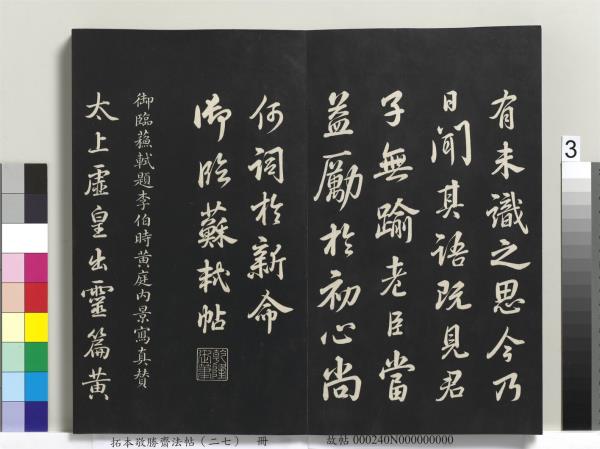 有未識之思今乃
日聞其語既見君
子無踰老臣當
益勵於初心尚
何詞於新命
御臨蘇軾帖
乾隆
御臨蘇軾題李伯時黃庭內景寫真贊
太上虛皇出靈篇黃
3
拓本敬勝齋法帖(二七) 冊
故帖 000240N000000000